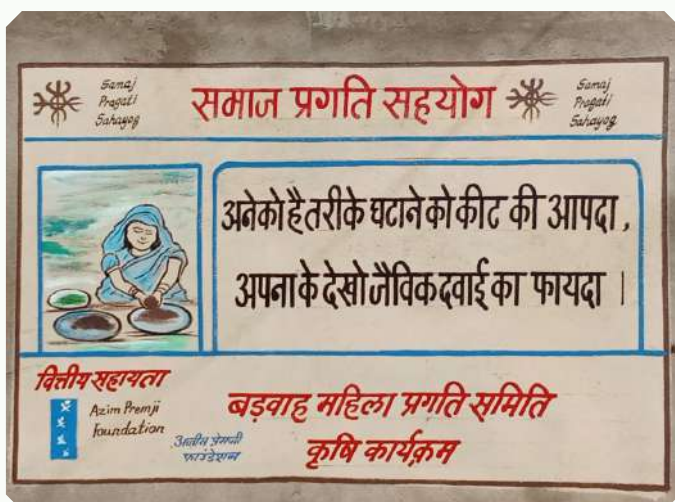 Samaj
Pragati
Sahayog
समाज प्रगति सहयोग
Samaj
Pragati
Sahayog
अनेको है तरीके घटाने को कीट की आपदा,
अपना के देखो जैविक दवाई का फायदा ।
वित्तीय सहायता
Azim Premji
Foundation
अज़ीम प्रेमजी
फाउंडेशन
बड़वाह महिला प्रगति समिति
कृषि कार्यक्रम